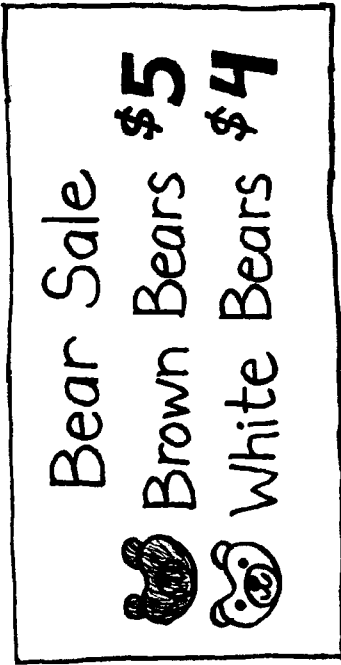 Bear Sale
Brown Bears $5
White Bears $4